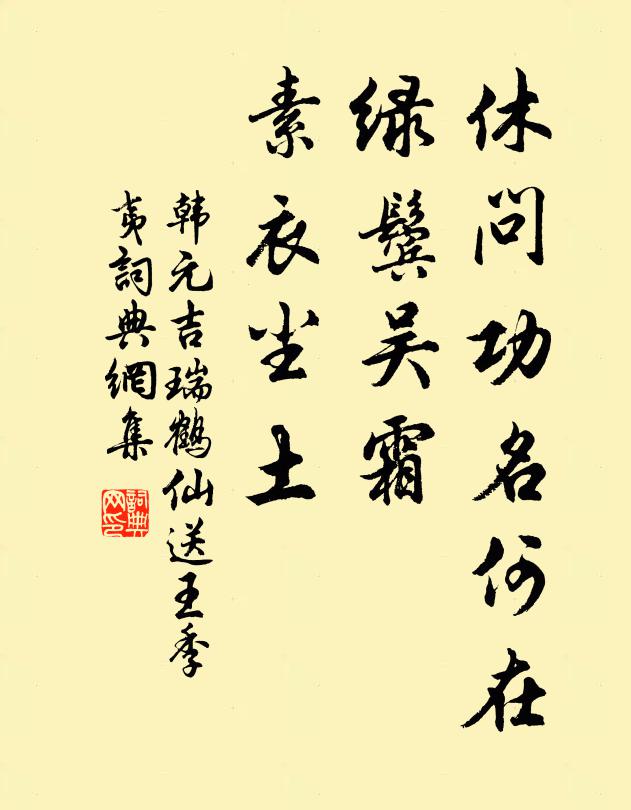 休问功名何在
绿鬓吴霜
素衣尘土
韩元吉瑞鹤仙送王季
夷詞典網集
詞典网印